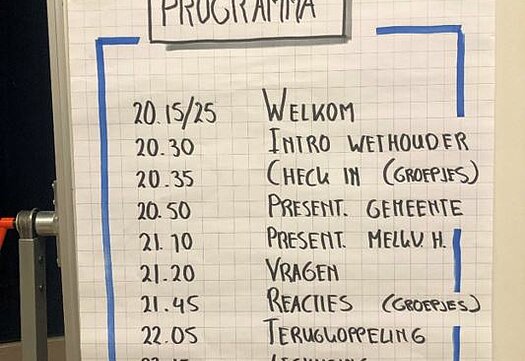 PROGRAMMA
20.15/25 WELKOM
20.30 INTRO WETHOUDER
20.35 CHECK IN (GROEPJES)
20.50 PRESENT. GEMEENTE
21.10 PRESENT. MELLV.H.
21.20 VRAGEN
21.45 REACTIES (GROEPJES)
22.05 TERUGKOPPELING